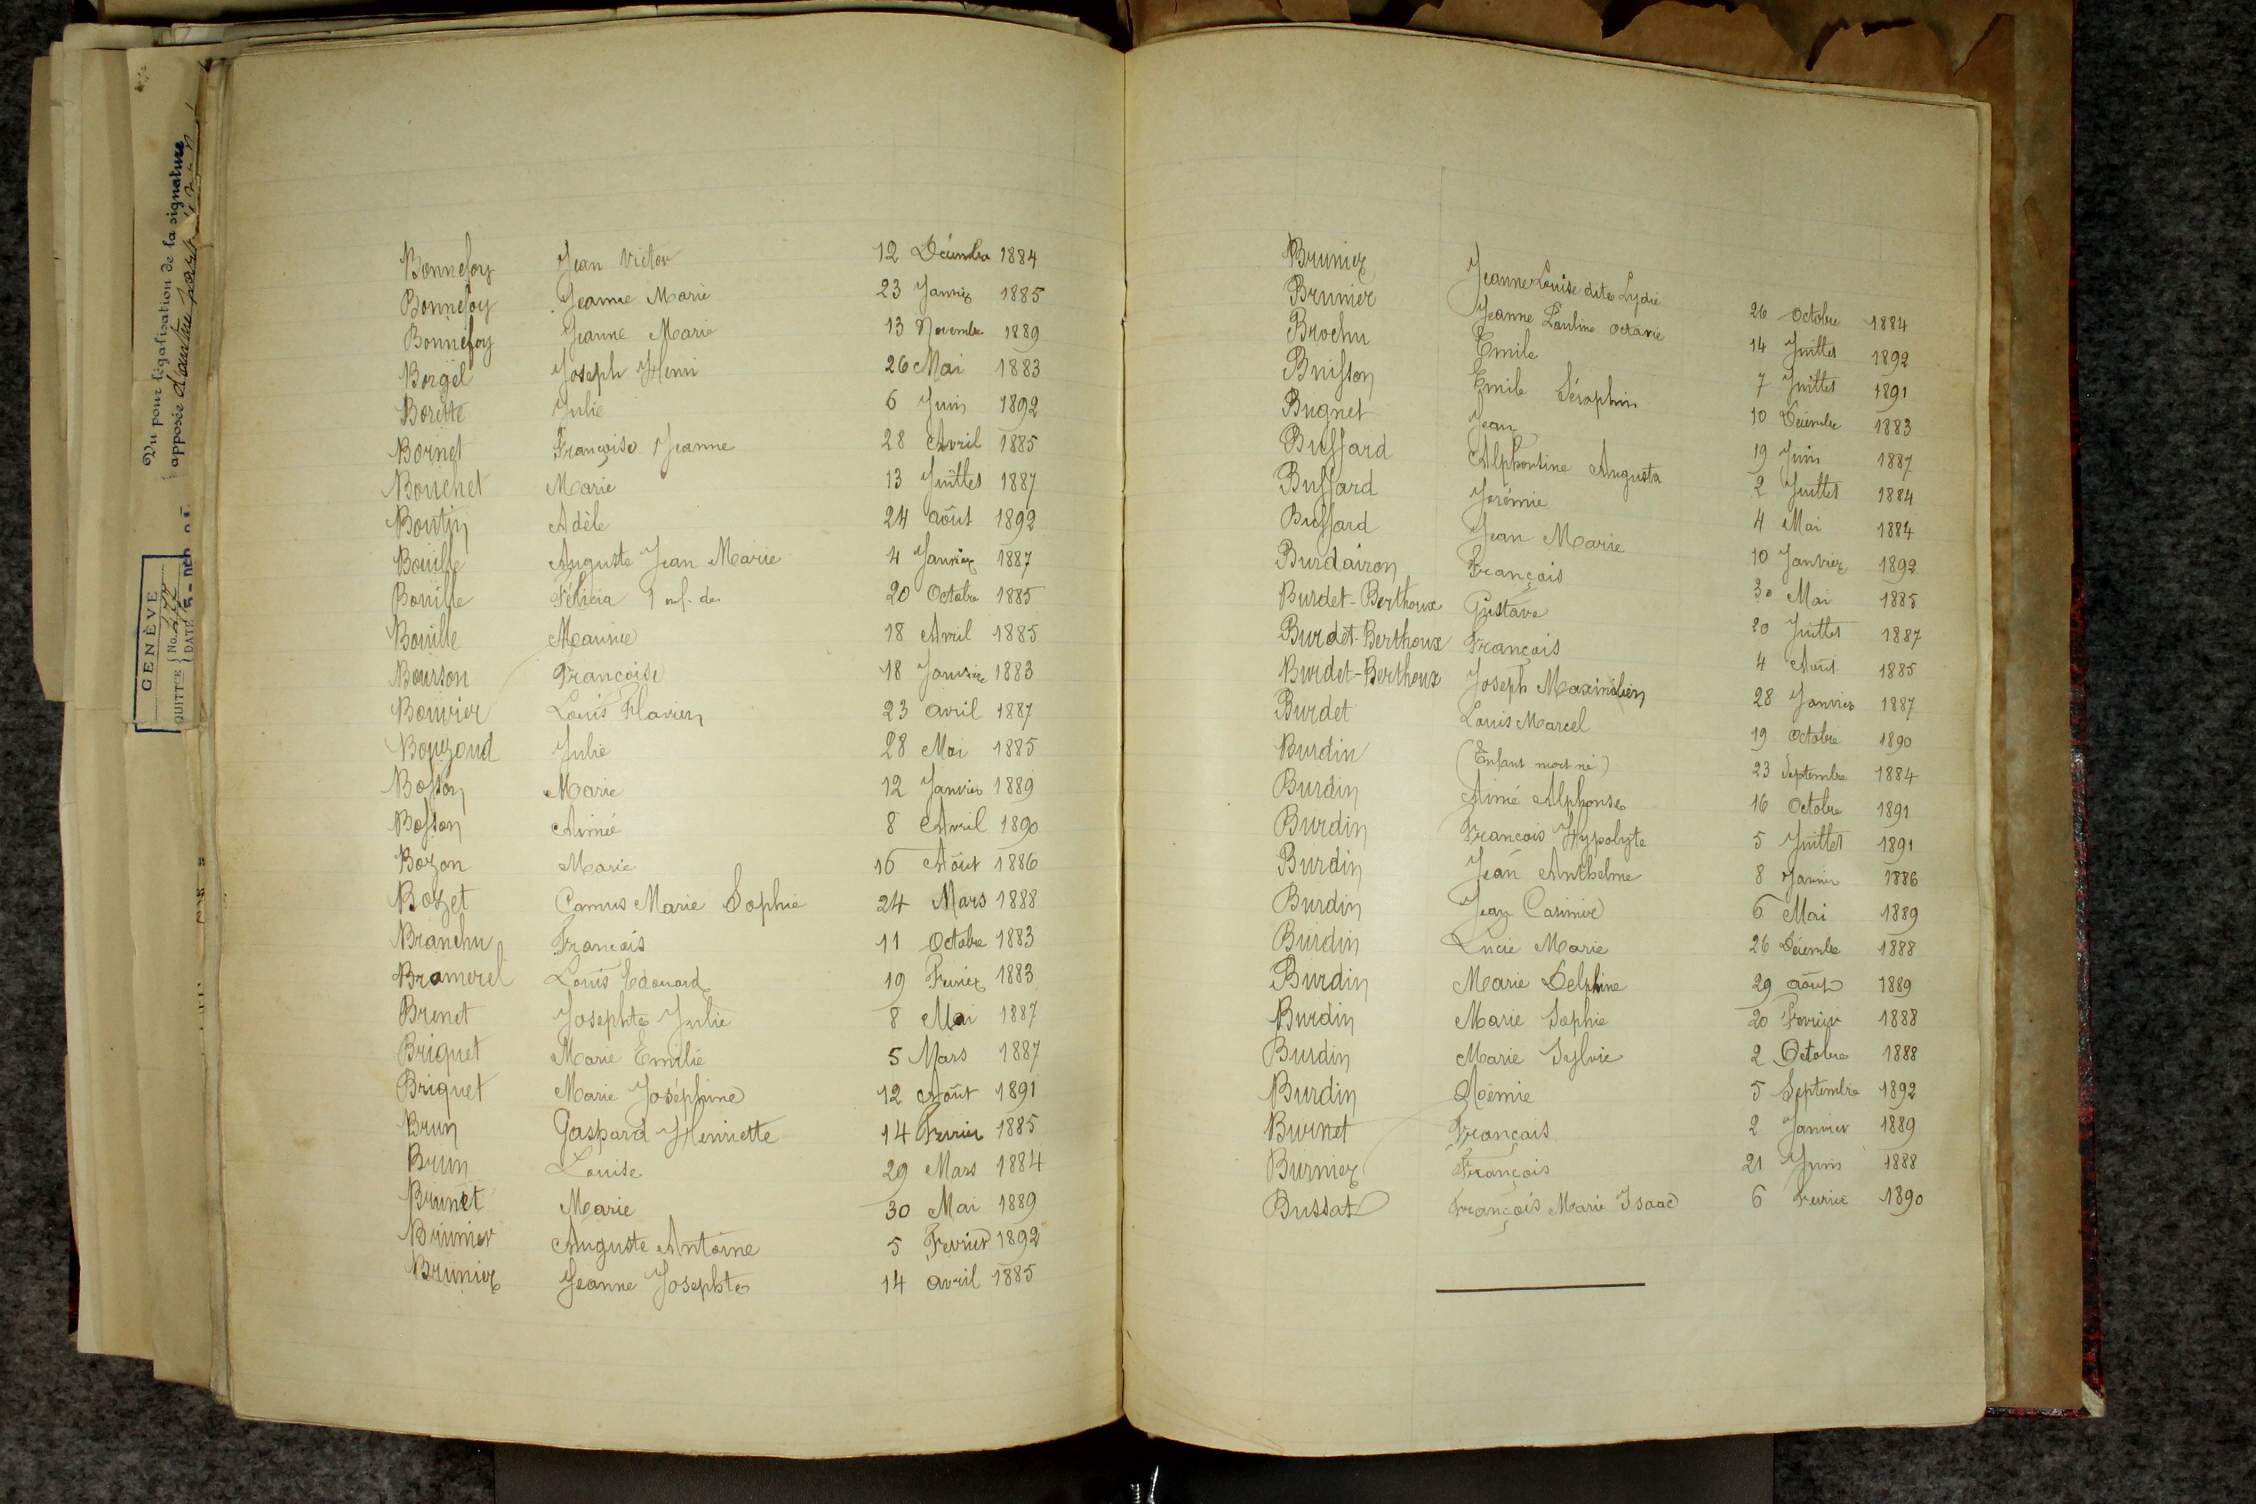 Vu pour légalisation de la signature
apposée d'autre part
GENÈVE
QUITTCE No. 477
DATE 5 - DÉC
Bonnefoy Jean Victor 12 Décembre 1884
Bonnefoy Jeanne Marie 23 Janvier 1885
Bonnefoy Jeanne Marie 13 Novembre 1889
Borgel Joseph Henri 26 Mai 1883
Borette Julie 6 Juin 1892
Bornet Françoise Jeanne 28 Avril 1885
Bouchet Marie 13 Juillet 1887
Boutin Adèle 24 août 1892
Bouille Auguste Jean Marie 4 Janvier 1887
Bouille Félicia 1 enf. de 20 Octobre 1885
Bouille Maurice 18 Avril 1885
Bourson Françoise 18 Janvier 1883
Bouvier Louis Flavien 23 avril 1887
Bouzoud Julie 28 Mai 1885
Bosson Marie 12 Janvier 1889
Bosson Aimée 8 Avril 1890
Bozon Marie 16 Août 1886
Bozet Camus Marie Sophie 24 Mars 1888
Branchu François 11 Octobre 1883
Bramerel Louis Edouard 19 Fevrier 1883
Brenet Josephte Julie 8 Mai 1887
Briquet Marie Emilie 5 Mars 1887
Briquet Marie Joséphine 12 Août 1891
Brun Gaspard Henriette 14 Fevrier 1885
Brun Louise 29 Mars 1884
Brunet Marie 30 Mai 1889
Brunier Auguste Antoine 5 Fevrier 1892
Brunier Jeanne Josephte 14 avril 1885
Brunier Jeanne Louise dite Lydie 26 octobre 1884
Brunier Jeanne Pauline octavie 14 Juillet 1892
Brochu Emile 7 Juillet 1891
Buisson Emile Séraphin 10 Décembre 1883
Bugnet Jean 19 Juin 1887
Buffard Alphonsine Augusta 2 Juillet 1884
Buffard Jérémie 4 Mai 1884
Buffard Jean Marie 10 Janvier 1892
Burdairon François 30 Mai 1885
Burdet-Berthoux Gustave 20 Juillet 1887
Burdet-Berthoux François 4 Août 1885
Burdet-Berthoux Joseph Maximilien 28 Janvier 1887
Burdet Louis Marcel 19 Octobre 1890
Burdin (Enfant mort né) 23 Septembre 1884
Burdin Aimé Alphonse 16 Octobre 1891
Burdin François Hypolyte 5 Juillet 1891
Burdin Jean Anthelme 8 Janvier 1886
Burdin Jean Casimir 6 Mai 1889
Burdin Lucie Marie 26 Décembre 1888
Burdin Marie Delphine 29 août 1889
Burdin Marie Sophie 20 Fevrier 1888
Burdin Marie Sylvie 2 Octobre 1888
Burdin Noémie 5 Septembre 1892
Burnet Francais 2 Janvier 1889
Burnier François 21 Juin 1888
Bussat François Marie Isaac 6 Fevrier 1890